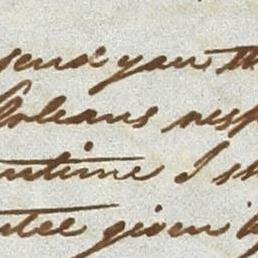 send you th
Orleans resp
ntime I sh
ntee given b